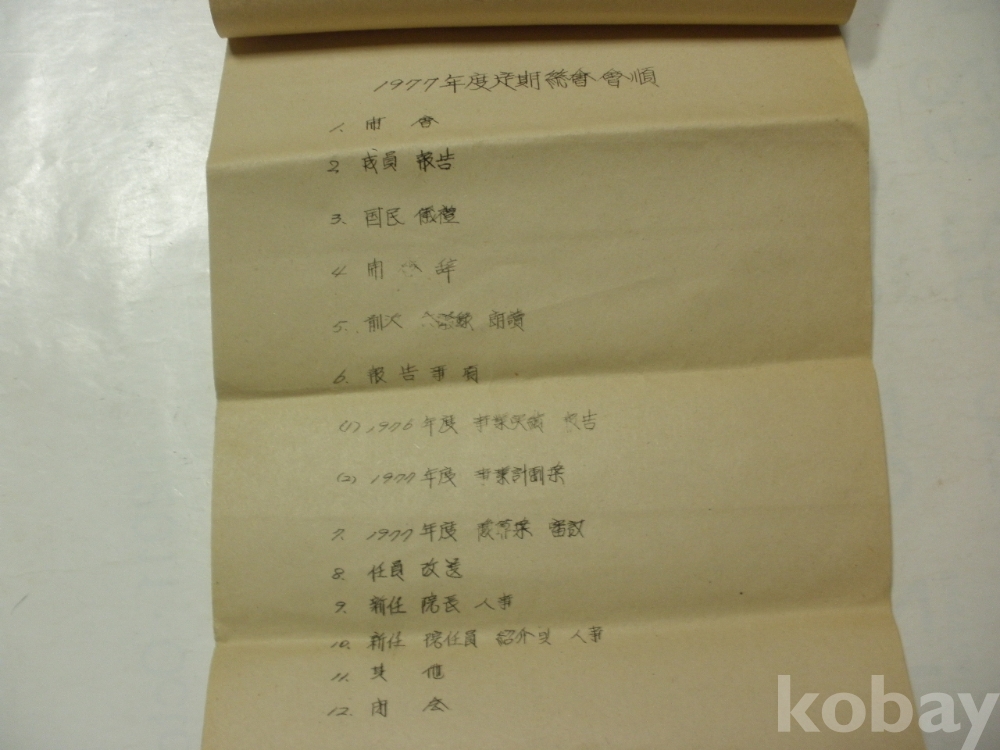 1977年度定期總會會順
1. 開 會
2. 成員 報告
3. 国民 儀禮
4. 開 會 辞
5. 前次 會議錄 朗讀
6. 報告事項
(1) 1976年度 事業実績 報告
(2) 1977年度 事業計劃案
7. 1977年度 案 審議
8. 任員 改選
9. 新任 院長 人事
10. 新任 院任員 紹介 및 人事
11. 其 他
12. 閉 会
kobay